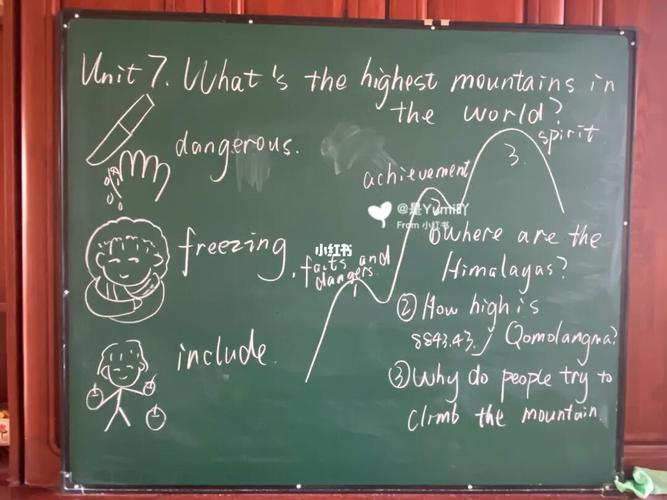 Unit 7. What's the highest mountains in
the world?
dangerous.
freezing.
include.
facts and
dangers.
1
achievement
2
spirit
3.
①Where are the
Himalayas?
②How high is
8843.43.j Qomolangma?
③Why do people try to
climb the mountain.
小红书
@是Yumi吖
From 小红书